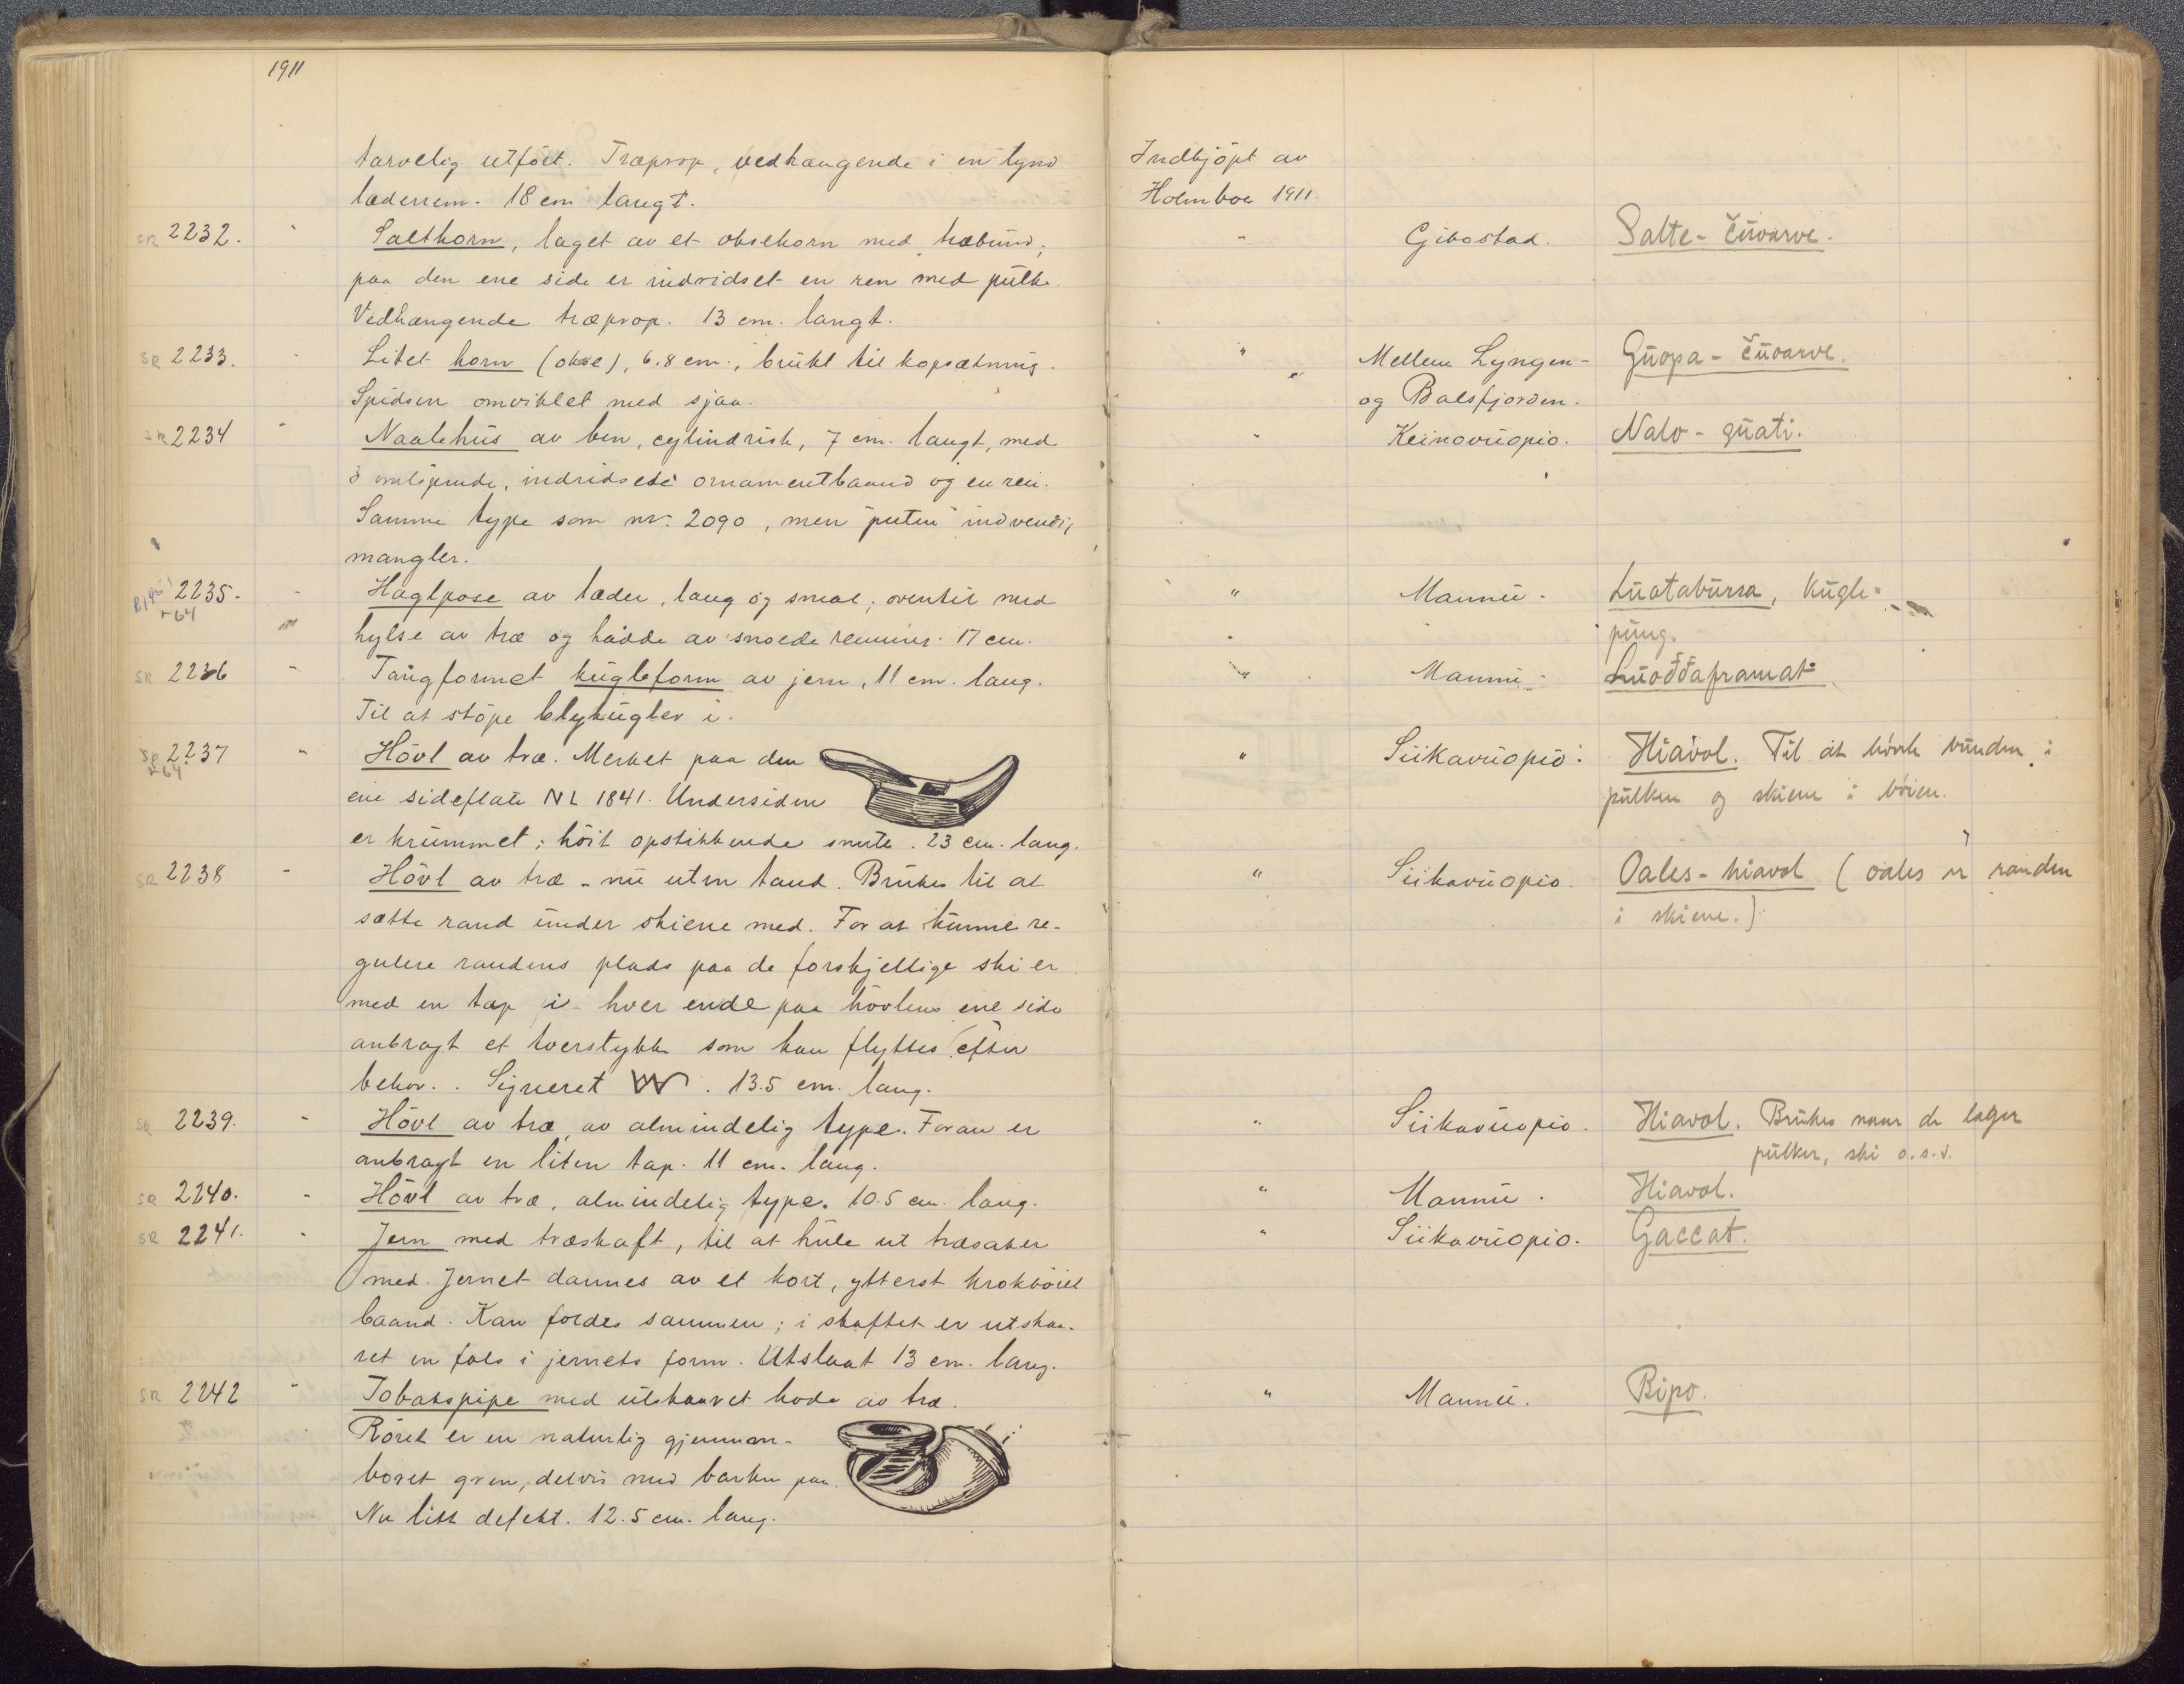 1911
tarvelig utført. Træprop, vedhængende i en tynd
læderrem. 18 cm langt.
Indkjöpt av
Holmboe 1911.
SR 2232. " Salthorn, laget av et oksehorn med træbund; " Gibostad. Salte-čuvarve.
paa den ene side er indridset en ren med pulk.
Vedhængende træprop. 13 cm. langt.
SR 2233. " Litet horn (okse), 6.8 cm., brukt til kopsætning. " Mellem Lyngen- Guopa-čuvarve.
Spidsen omviklet med sjaa. " og Balsfjorden.
SR 2234 " Naalehus av ben, cylindrisk, 7 cm. langt, med " Keinovuopio. Nalo-guati.
3 omløpende, indridsede ornamentbaand og en ren.
Samme type som nr. 2090, men "puten" indvendig
mangler.
2235. " Haglpose av læder, lang og smal; oventil med " Mannu. Luotabursa, Kugle-
+64 hylse av træ og hadde av snoede remmer. 17 cm. pung.
SR 2236 " Tangformet kugleform av jern, 11 cm. lang. " Mannu. Luođđaframat
Til at støpe blykugler i.
SR 2237 " Hövl av træ. Merket paa den " Siikavuopio. Hiavol. Til at hövle bunden i
+64 ene sideflate NL 1841. Undersiden pulken og skiene i böien.
er krummet; höit opstikkende snute. 23 cm. lang.
SR 2238 " Hövl av træ - nu uten tand. Brukes til at " Siikavuopio. Oales-hiavol (oales er randen
sætte rand under skiene med. For at kunne re- i skiene.)
gulere randens plads paa de forskjellige ski er
med en tap i hver ende paa hövlens ene side
anbragt et tverstykke som kan flyttes efter
behov. Signeret W. 13.5 cm. lang.
SR 2239. " Hövl av træ, av almindelig type. Foran er " Siikavuopio. Hiavol. Brukes naar de lager
anbragt en liten tap. 11 cm. lang. pulker, ski o.s.v.
SR 2240. " Hövl av træ, almindelig type. 10.5 cm. lang. " Mannu. Hiavol.
SR 2241. " Jern med træskaft, til at hule ut træsaker " Siikavuopio. Gaccat.
med. Jernet dannes av et kort, ytterst krokböiet
baand. Kan foldes sammen; i skaftet er utskaa-
ret en fals i jernets form. Utslaat 13 cm. lang.
SR 2242 " Tobakspipe med utskaaret hode av træ. " Mannu. Bipo.
Röret er en naturlig gjennem-
boret gren, delvis med barken paa.
Nu litt defekt. 12.5 cm. lang.